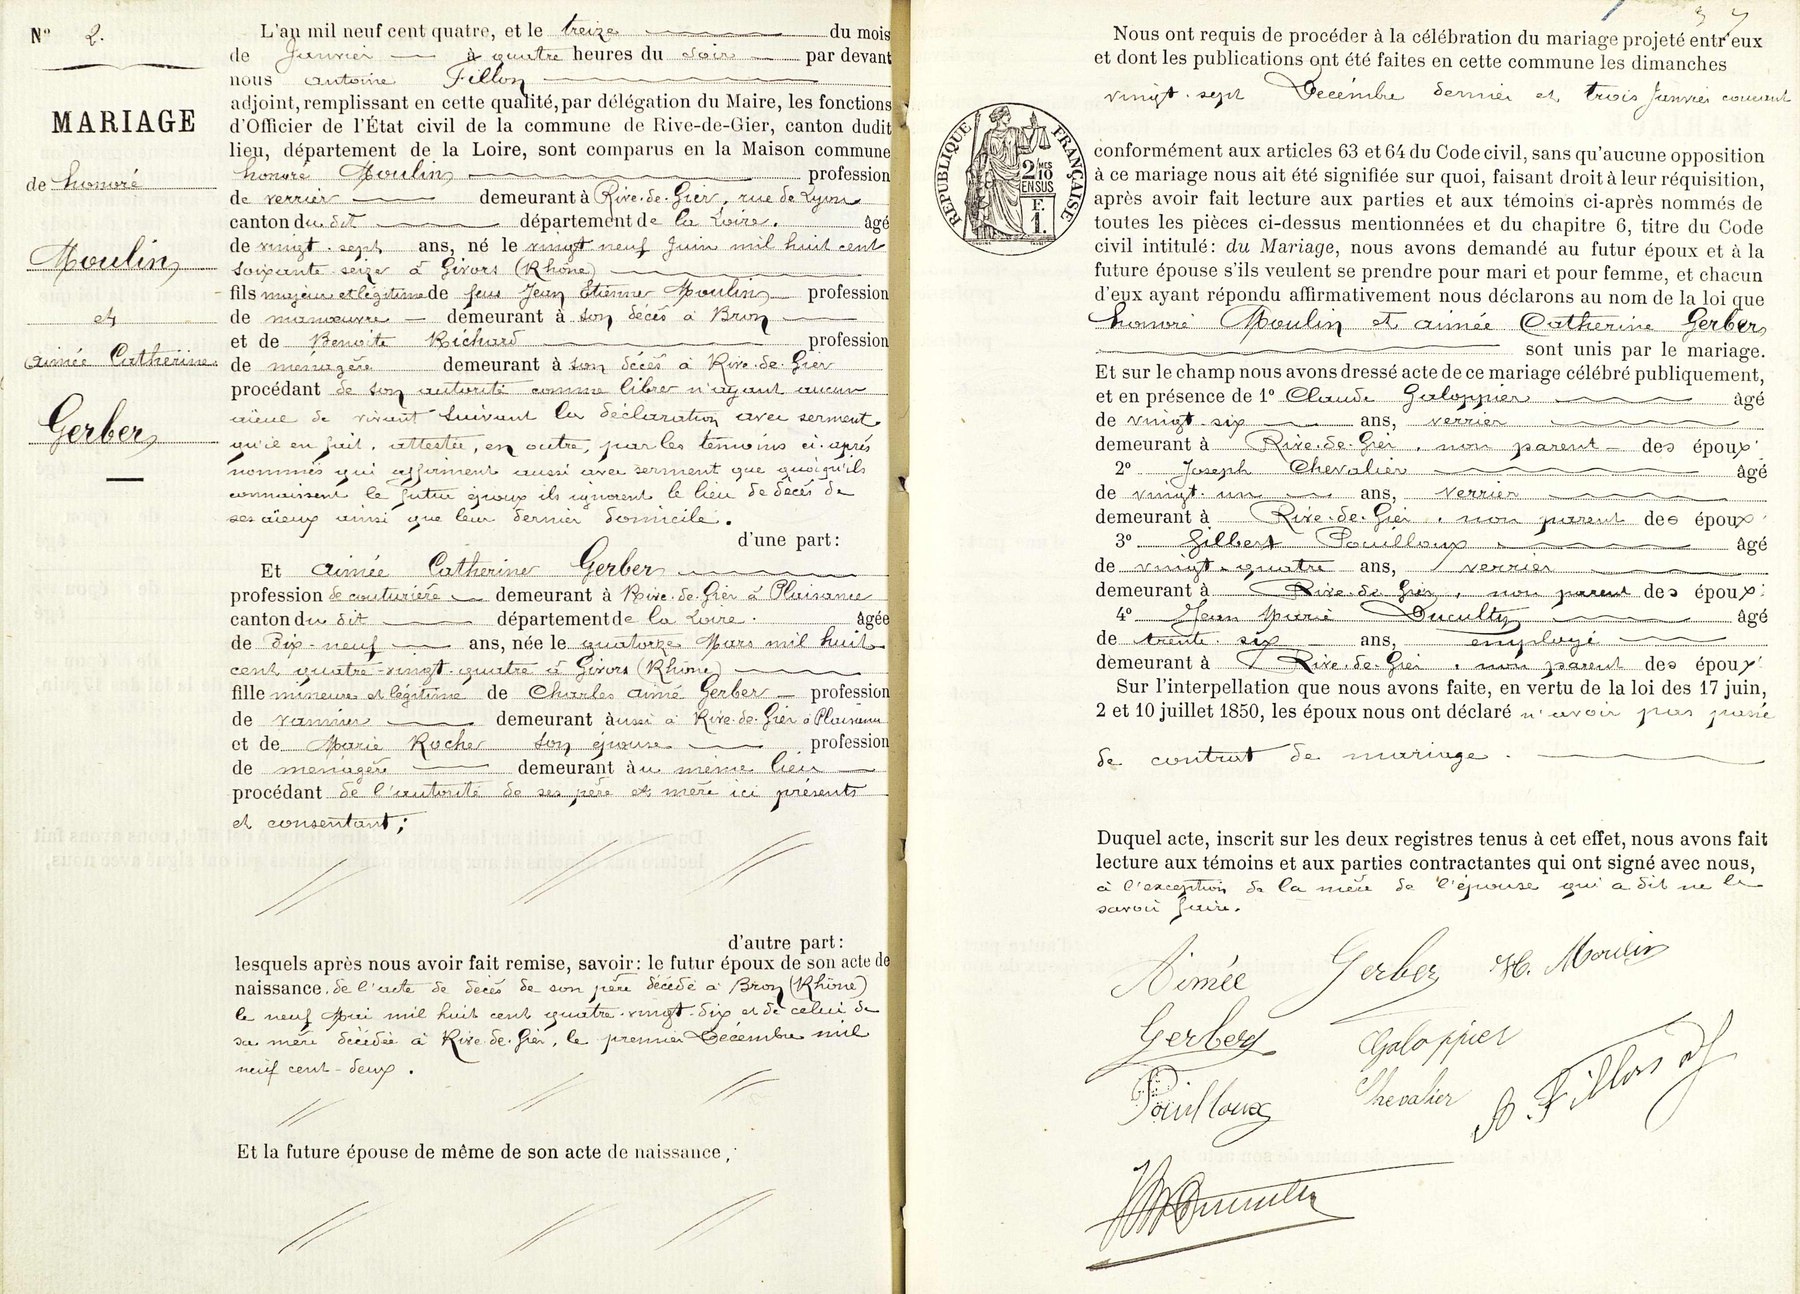 N° 2.
MARIAGE
de honoré
Moulin
et
aimée Catherine
Gerber
L'an mil neuf cent quatre, et le treize du mois
de Janvier à quatre heures du soir par devant
nous antoine Fillon
adjoint, remplissant en cette qualité, par délégation du Maire, les fonctions
d'Officier de l'État civil de la commune de Rive-de-Gier, canton dudit
lieu, département de la Loire, sont comparus en la Maison commune
honoré Moulin profession
de verrier demeurant à Rive-de-Gier, rue de Lyon
canton du dit département de la Loire. âgé
de vingt-sept ans, né le vingt neuf Juin mil huit cent
soixante seize à Givors (Rhône)
fils majeur et légitime de feu Jean Etienne Moulin profession
de manœuvre demeurant à son décès à Bron
et de Benoite Richard profession
de ménagère demeurant à son décès à Rive-de-Gier
procédant de son autorité comme libre n'ayant aucun
aïeul de vivant suivant la déclaration avec serment
qu'il en fait, attestée, en outre, par les temoins ci-après
nommés qui affirment aussi avec serment que quoiqu'ils
connaissent le futur époux ils ignorent le lieu de décès de
ses aïeux ainsi que leur dernier domicile.
d'une part:
Et aimée Catherine Gerber
profession de couturière demeurant à Rive-de-Gier à Plaisance
canton du dit département de la Loire. âgée
de Dix-neuf ans, née le quatorze Mars mil huit
cent quatre-vingt-quatre à Givors (Rhône)
fille mineure et légitime de Charles aimé Gerber profession
de vannier demeurant aussi à Rive-de-Gier à Plaisance
et de Marie Rocher son épouse profession
de ménagère demeurant au même lieu
procédant de l'autorité de ses père et mère ici présents
et consentant;
d'autre part:
lesquels après nous avoir fait remise, savoir: le futur époux de son acte de
naissance, de l'acte de décès de son père décédé à Bron (Rhône)
le neuf Mai mil huit cent quatre-vingt-dix et de celui de
sa mère décédée à Rive-de-Gier, le premier Décembre mil
neuf cent-deux.
Et la future épouse de même de son acte de naissance,
Nous ont requis de procéder à la célébration du mariage projeté entr'eux
et dont les publications ont été faites en cette commune les dimanches
vingt-sept Décembre dernier et trois Janvier courant
RÉPUBLIQUE FRANÇAISE
2/10 MES
EN SUS
F.
1.
conformément aux articles 63 et 64 du Code civil, sans qu'aucune opposition
à ce mariage nous ait été signifiée sur quoi, faisant droit à leur réquisition,
après avoir fait lecture aux parties et aux témoins ci-après nommés de
toutes les pièces ci-dessus mentionnées et du chapitre 6, titre du Code
civil intitulé: du Mariage, nous avons demandé au futur époux et à la
future épouse s'ils veulent se prendre pour mari et pour femme, et chacun
d'eux ayant répondu affirmativement nous déclarons au nom de la loi que
honoré Moulin et aimée Catherine Gerber
sont unis par le mariage.
Et sur le champ nous avons dressé acte de ce mariage célébré publiquement,
et en présence de 1° Claude Galoppier âgé
de vingt-six ans, verrier
demeurant à Rive-de-Gier, non parent des époux
2° Joseph Chevalier âgé
de vingt-un ans, verrier
demeurant à Rive-de-Gier, non parent des époux
3° Gilbert Pouilloux âgé
de vingt-quatre ans, verrier
demeurant à Rive-de-Gier, non parent des époux
4° Jean Marie âgé
de trente-six ans, employé
demeurant à Rive-de-Gier, non parent des époux
Sur l'interpellation que nous avons faite, en vertu de la loi des 17 juin,
2 et 10 juillet 1850, les époux nous ont déclaré n'avoir pas passé
de contrat de mariage.
Duquel acte, inscrit sur les deux registres tenus à cet effet, nous avons fait
lecture aux témoins et aux parties contractantes qui ont signé avec nous,
à l'exception de la mère de l'épouse qui a dit ne le
savoir faire.
Aimée Gerber H. Moulin
Gerber Galoppier
Pouilloux Chevalier A. Fillon